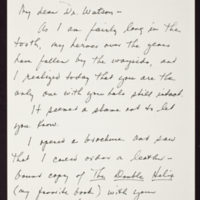 My dear Dr. Watson -
As I am fairly long in the
tooth, my heroes over the years
have fallen by the wayside, and
I realized today that you are the
only one with your halo still intact.
It seemed a shame not to let
you know.
I opened a brochure and saw
that I could order a leather-
bound copy of "The Double Helix
(my favorite book) with your